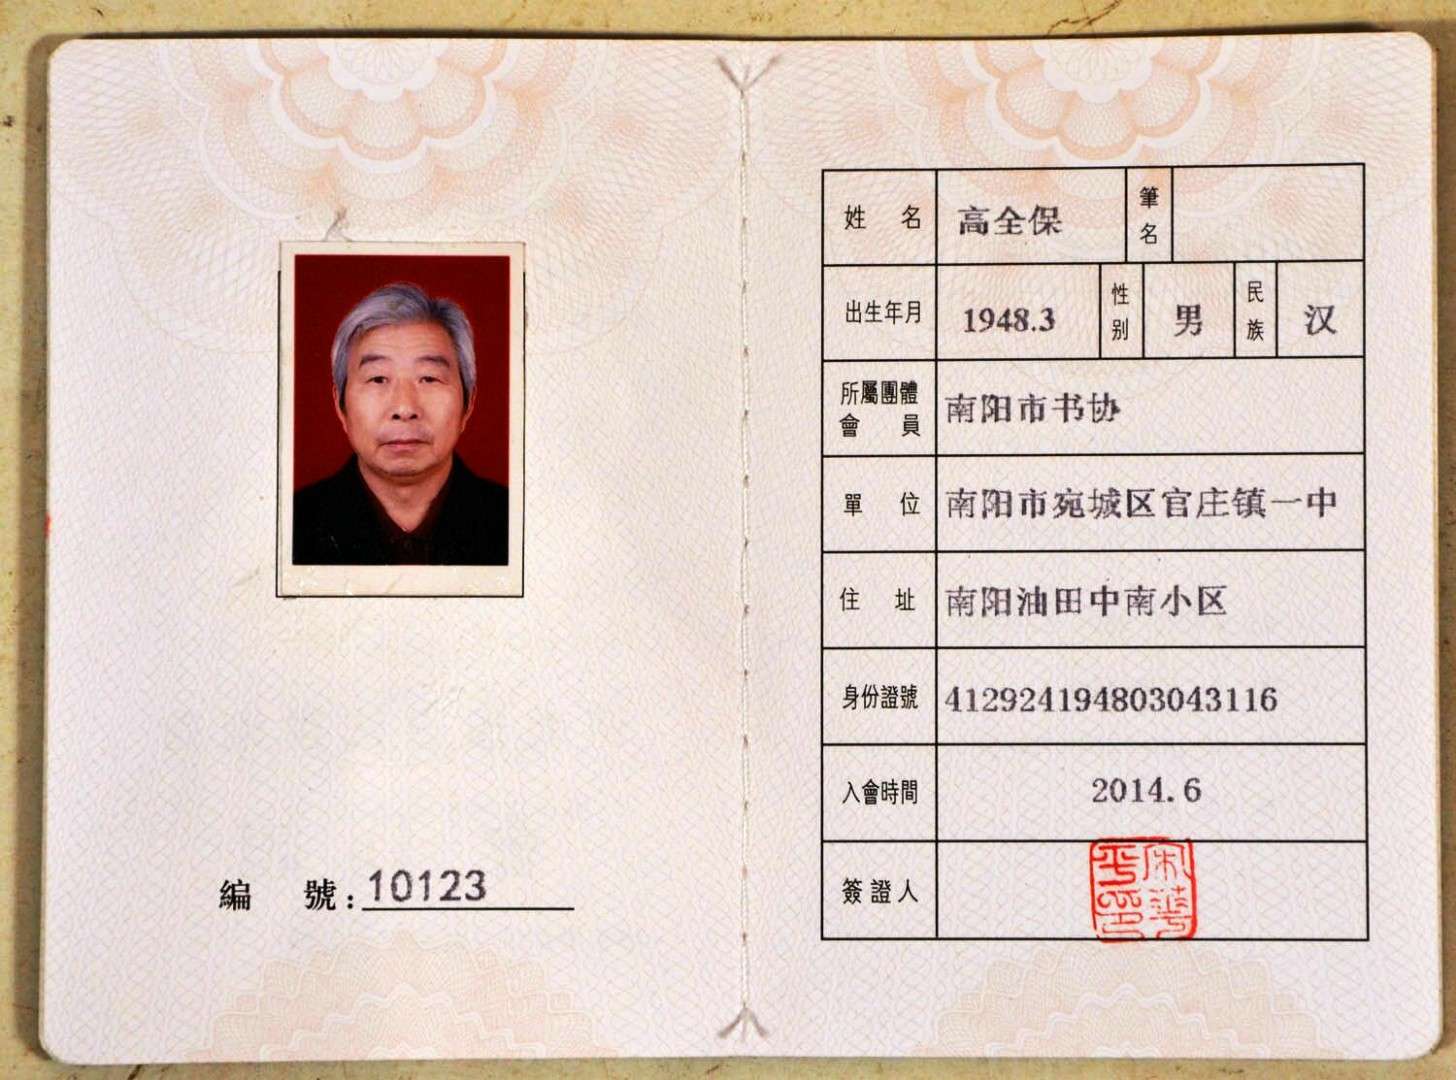 編 號：10123
姓 名 高全保 筆名
出生年月 1948.3 性别 男 民族 汉
所屬團體會員 南阳市书协
單 位 南阳市宛城区官庄镇一中
住 址 南阳油田中南小区
身份證號 412924194803043116
入會時間 2014.6
簽證人 宋華平印